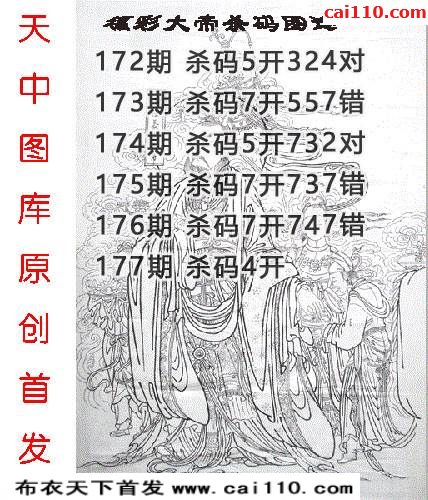 cai110.com
彩大帝杀码图
172期 杀码5开324对
173期 杀码7开557错
174期 杀码5开732对
175期 杀码7开737错
176期 杀码7开747错
177期 杀码4开
天中图库原创首发
布衣天下首发 www.cai110.com